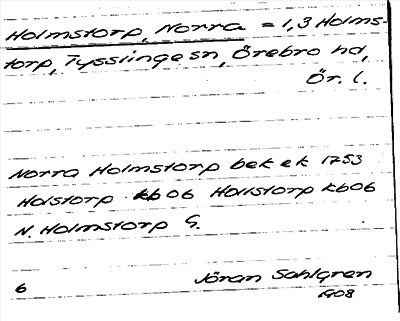 Holmstorp, Norra = 1,3 Holms-
torp, Tysslinge sn, Örebro hd,
Ör. l.
Norra Holmstorp bek ek 1753
Holstorp kb 06 Hallstorp kb 06
N. Holmstorp G.
6 Jöran Sahlgren
1908